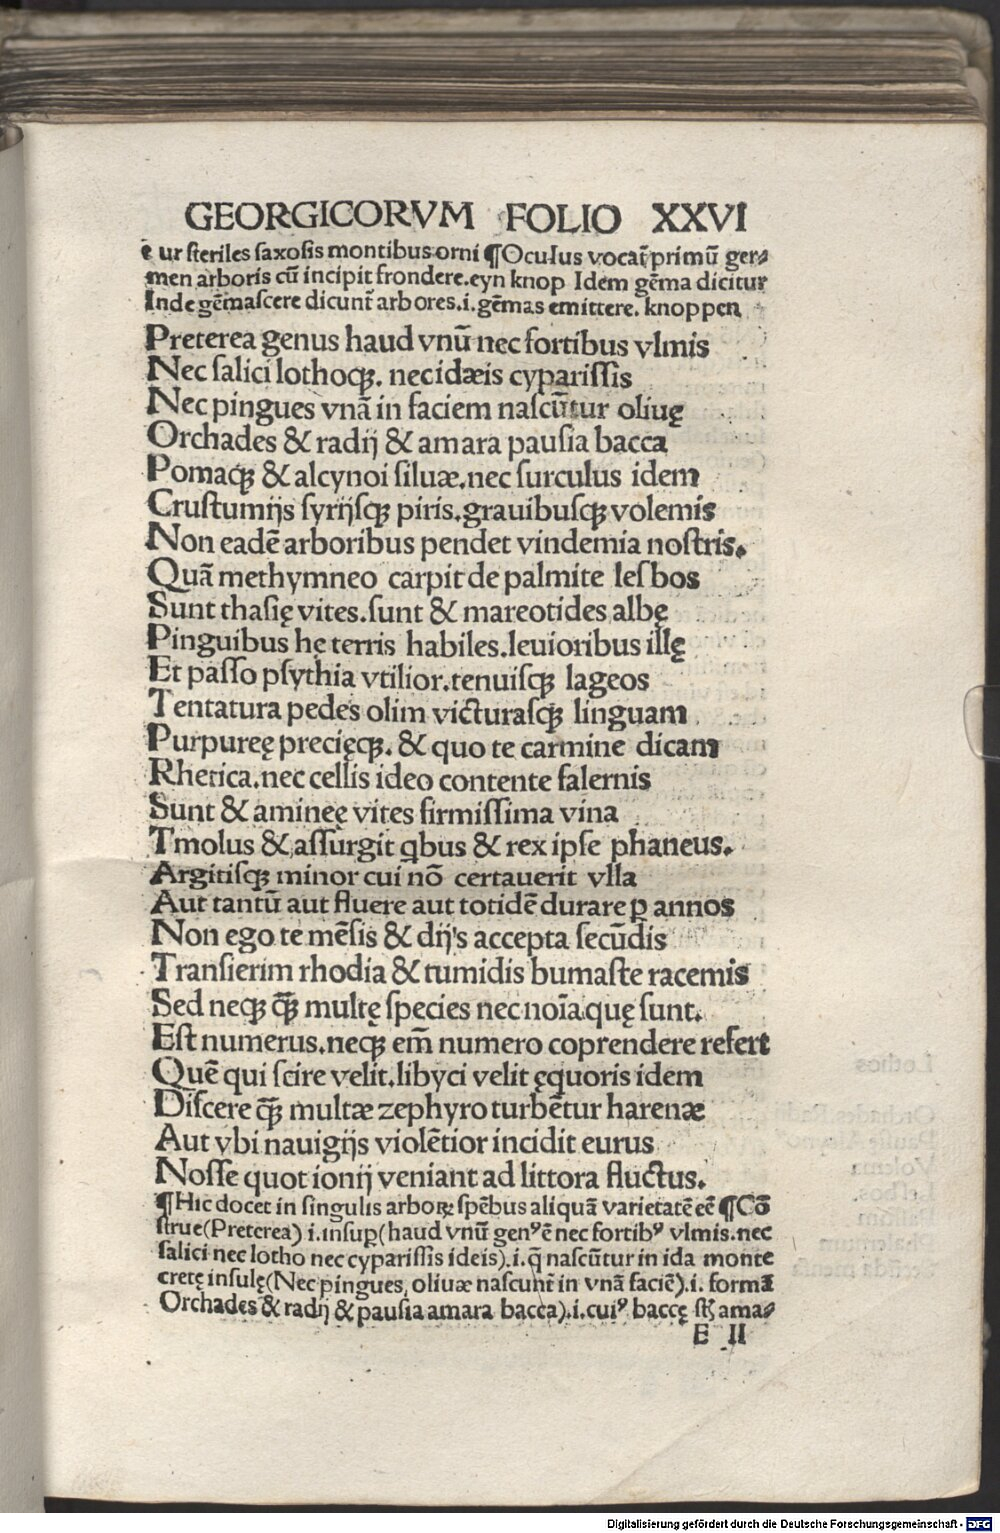 GEORGICORVM FOLIO XXVI
ē ur steriles saxosis montibus orni ¶Oculus vocat̃ primū ger⸗
men arboris cū incipit frondere.eyn knop Idem gēma dicitur
Inde gēmascere dicunt̃ arbores.i.gēmas emittere. knoppen
Preterea genus haud vnū nec fortibus vlmis
Nec salici lothoqꝫ. nec idæis cyparissis
Nec pingues vnā in faciem nascūtur oliuę
Orchades & radij & amara pausia bacca
Pomaqꝫ & alcynoi siluæ.nec surculus idem
Crustumijs syrijsqꝫ piris.grauibusqꝫ volemis
Non eadē arboribus pendet vindemia nostris.
Quā methymneo carpit de palmite lesbos
Sunt thasię vites.sunt & mareotides albę
Pinguibus hę terris habiles.leuioribus illę
Et passo psythia vtilior.tenuisqꝫ lageos
Tentatura pedes olim victurasqꝫ linguam
Purpureę precięqꝫ. & quo te carmine dicam
Rhetica.nec cellis ideo contente falernis
Sunt & amineę vites firmissima vina
Tmolus & assurgit qbus & rex ipse phaneus.
Argitisqꝫ minor cui nō certauerit vlla
Aut tantū aut fluere aut totidē durare ꝑ annos
Non ego te mēsis & dij's accepta secūdis
Transierim rhodia & tumidis bumaste racemis
Sed neqꝫ qꝫ̄ multę species nec noīa quę sunt.
Est numerus.neqꝫ em̄ numero coprendere refert
Quē qui scire velit.libyci velit ęquoris idem
Discere qꝫ̄ multæ zephyro turbētur harenæ
Aut vbi nauigijs violētior incidit eurus
Nosse quot ionij veniant ad littora fluctus.
¶Hic docet in singulis arboꝝ spēbus aliquā varietatē eē ¶Cō
strue(Preterea) i.insuꝑ(haud vnū genꝰ ē nec fortibꝰ vlmis.nec
salici nec lotho nec cyparissis ideis).i.q̄ nascūtur in ida monte
cretę insulę(Nec pingues, oliuæ nascunt̃ in vnā faciē).i. formā
Orchades & radij & pausia amara bacca).i.cuiꝰ baccę st̄ ama⸗
E II
Digitalisierung gefördert durch die Deutsche Forschungsgemeinschaft - DFG